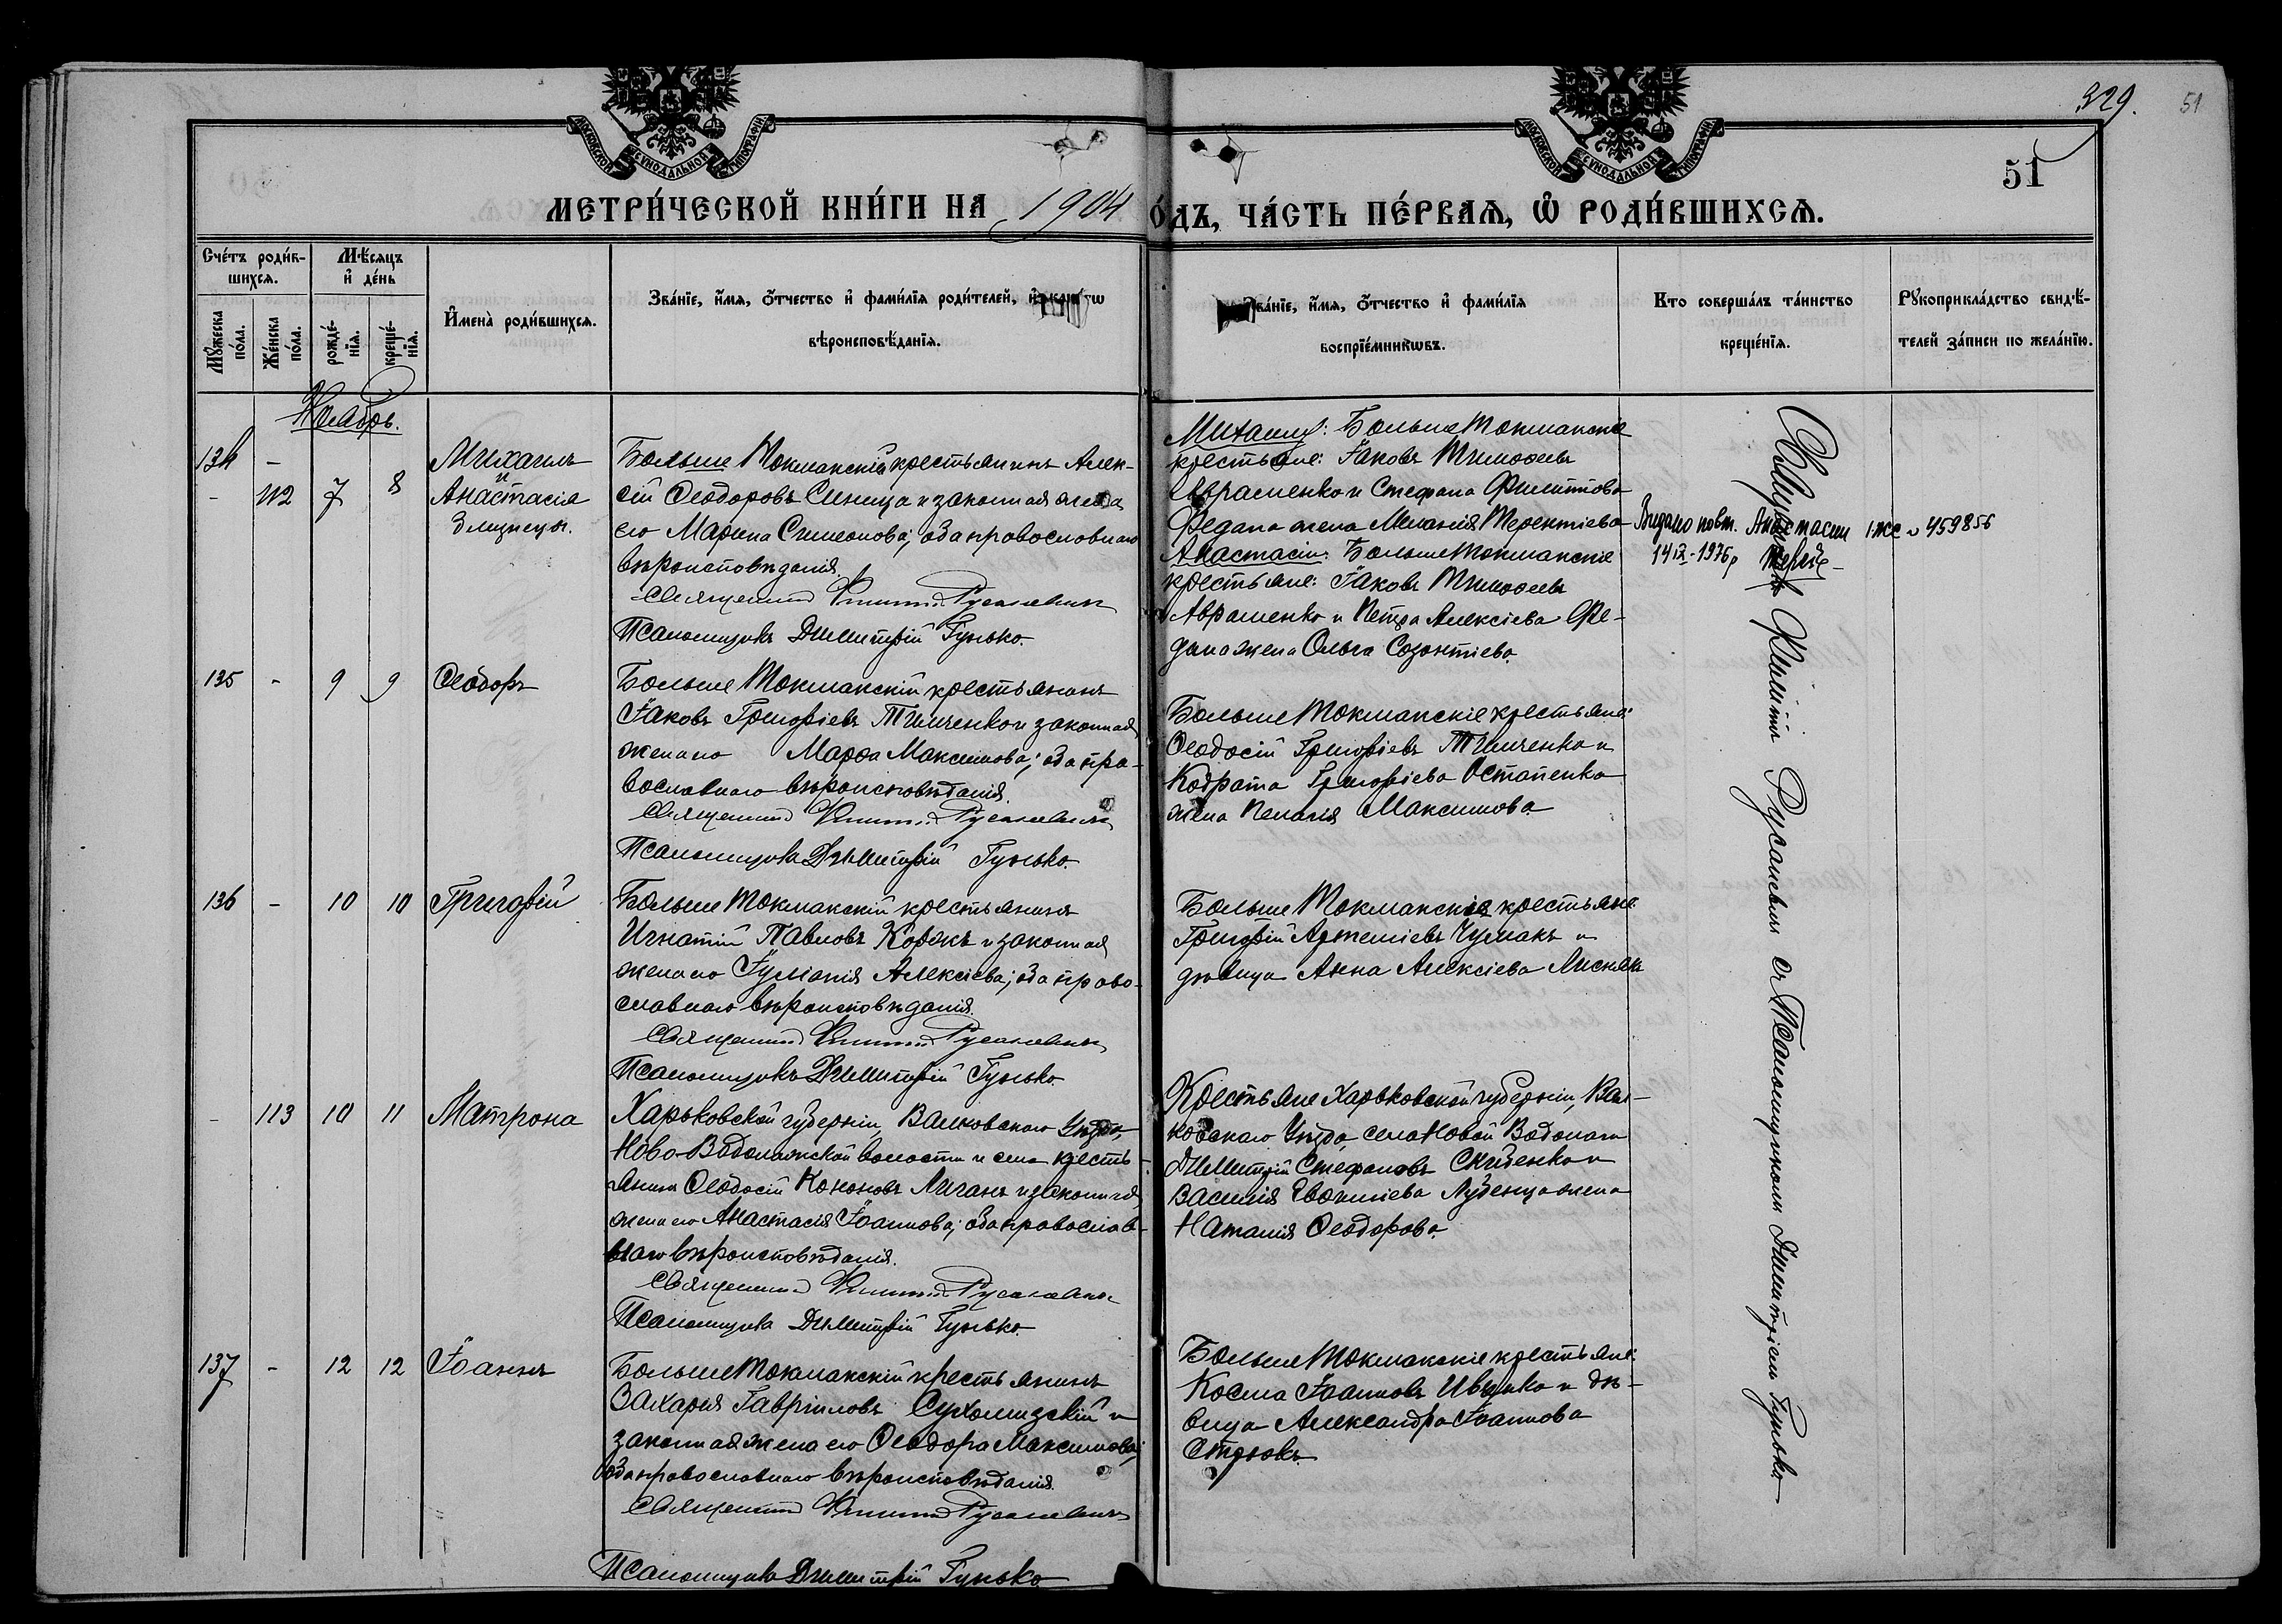 329.
51
51
МОСКОВСКОЙ СѴНОДАЛЬНОЙ ТИПОГРАФІИ
МОСКОВСКОЙ СѴНОДАЛЬНОЙ ТИПОГРАФІИ
МЕТРИ́ЧЕСКОЙ КНИ́ГИ НА 1904
О́ДЪ, ЧА́СТЬ ПЕ́РВАѦ, Ѽ РОДИ́ВШИХСѦ.
Счéтъ роди́в-
шихсѧ.
Мѣ́сяцъ
и҆ дéнь
Мꙋ́жеска
по́ла.
Же́нска
по́ла.
рожде́-
нїѧ.
креще́-
нїѧ.
И҆мена̀ роди́вшихсѧ.
Зва́нїе, и҆́мѧ, ѻ҆́тчество и҆ фами́лїѧ роди́телей, и҆
вѣроисповѣ́данїѧ.
ва́нїе, и҆́мѧ, ѻ҆́тчество и҆ фами́лїѧ
воспрїе́мникѡвъ.
Кто соверша́лъ та́инство
креще́нїѧ.
Рꙋкоприкла́дство свидѣ́-
телей за́писи по жела́нїю.
Ноябрь.
134 -
- 112 7 8
Михаилъ
и
Анастасія
близнецы.
Больше Токмакскій крестьянинъ Алек-
сій Ѳеодоровъ Синица и законная жена
его Марина Симеонова; оба православнаго
вѣроисповѣданія.
Священникъ Филиппъ Русаневичъ
Псаломщикъ Димитрій Гунько.
Михаила: Больше Токмакскіе
крестьяне: Іаковъ Тимоѳеевъ
Авраменко и Стефана Филиппова
Федана жена Меланія Терентіева
Анастасіи: Больше Токмакскіе
крестьяне: Іаковъ Тимоѳеевъ
Авраменко и Петра Алексіева Фе-
дана жена Ольга Созонтіева.
Видано повт. Анастасии 1-ЖС № 459856
14 IX-1976р
Священникъ Филиппъ Русаневичъ съ Псаломщикомъ Димитріемъ Гунько
135 - 9 9 Ѳеодоръ
Больше Токмакскій крестьянинъ
Іаковъ Григоріевъ Тимченко и законная
жена его Марѳа Максимова; оба пра-
вославнаго вѣроисповѣданія.
Священникъ Филиппъ Русаневичъ
Псаломщикъ Димитрій Гунько.
Больше Токмакскіе крестьяне:
Ѳеодосій Григоріевъ Тимченко и
Кодрата Григоріева Остапенка
жена Пелагія Максимова.
136 - 10 10 Григорій
Больше Токмакскій крестьянинъ
Игнатій Павловъ Коржъ и законная
жена его Іуліанія Алексіева; оба право-
славнаго вѣроисповѣданія.
Священникъ Филиппъ Русаневичъ
Псаломщикъ Димитрій Гунько.
Больше Токмакскіе крестьяне
Григорій Артеміевъ Чумакъ и
дѣвица Анна Алексіева
- 113 10 11 Матрона
Харьковской губерніи, Валковскаго Уѣзда,
Ново-Водолажской волости и села кресть-
янинъ Ѳеодосій Кононовъ Лиганъ и законная
жена его Анастасія Іоаннова; оба православ-
наго вѣроисповѣданія.
Священникъ Филиппъ Русаневичъ
Псаломщикъ Димитрій Гунько.
Крестьяне Харьковской губерніи, Вал-
ковскаго Уѣзда села Новой Водолаги
Димитрій Стефановъ и
Василія Евѳиміева жена
Наталія Ѳеодорова.
137 - 12 12 Іоаннъ
Больше Токмакскій крестьянинъ
Захарія Гавріиловъ Сухомизскій и
законная жена его Ѳеодора Максимова;
оба православнаго вѣроисповѣданія.
Священникъ Филиппъ Русаневичъ
Псаломщикъ Димитрій Гунько
Больше Токмакскіе крестьяне:
Косма Іоанновъ Ивченко и дѣ-
вица Александра Іоаннова